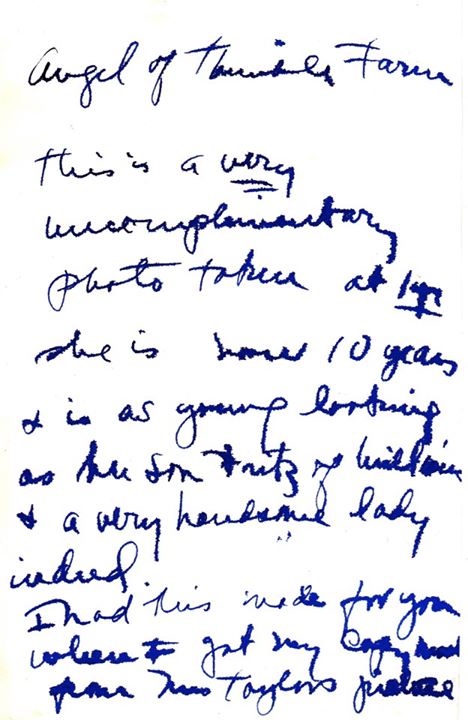 Angel of Farm
this is a very
uncomplimentary
photo taken at 1 yr
she is now 10 years
& is as young looking
as her son Fritz of
& a very handsome lady
indeed.
I had this made for you
when I got my copy
from Mrs Taylors picture